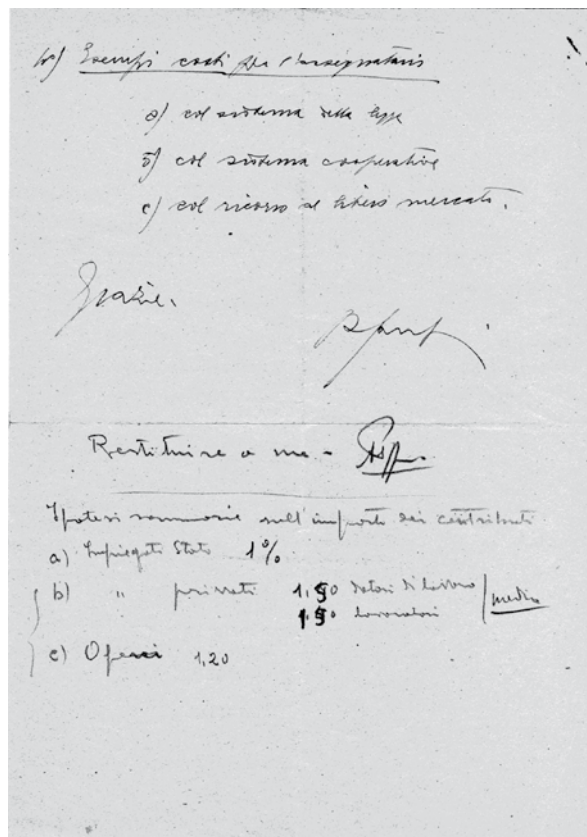 Esempi costi per l'assegnatario
a) col sistema della legge
b) col sistema cooperative
c) col ricorso al libero mercato.
Grazie.
Restituire a me -
Ipotesi sommarie sull'importo dei contributi
a) Impiegati Stato 1%
b) " privati 1,50 datori di lavoro
1,50 lavoratori
media
c) Operai 1,20